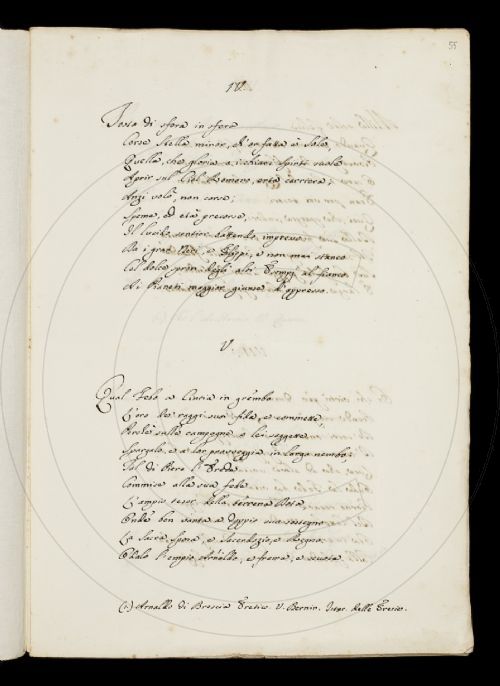 55
IV.
Tosto di sfera in sfera
Corse Stella minor, ch'or fatta è Sole,
Quella, che gloria a i chiari spirti suole
Aprir sul Ciel Romano, erta carriera;
Anzi volò, non corse;
Speme, ed età precorse,
Il lucido sentier battendo impresso
Da i gran e Filippi, e non mai stanco
Col dolce spron degli alti al fianco
Ai Pianeti maggior giunse d'appresso.
V.
Qual Febo a Cintia in grembo
L'oro de' raggi suoi fida, e commette,
Perch'è sulle campagne a lei soggette
Spargalo, e a lor provveggia in largo nembo;
Tal di Piero l'Erede
Commise alla sua fede
L'ampio tesor della terrena Dote,
Ond'è ben vanta a doppio suo sostegno
La Sacra Sposa, e Sacerdozio, e Regno.
l'empio Arnaldo, e frema, e scuota
(1) Arnaldo di Brescia Eretico. V. Bernin. Istor. delle Eresie.